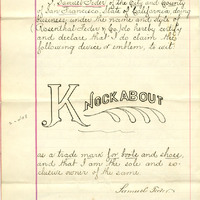 I, Samuel Feder, of the City and County
of San Francisco, State of California, doing
business under the name and style of
Rosenthal Feder & Co, do hereby certify
and declare that I do claim the
following device or emblem, to wit:
KNOCKABOUT
as a trade mark for boots and shoes,
and that I am the sole and ex-
clusive owner of the same
Samuel Feder